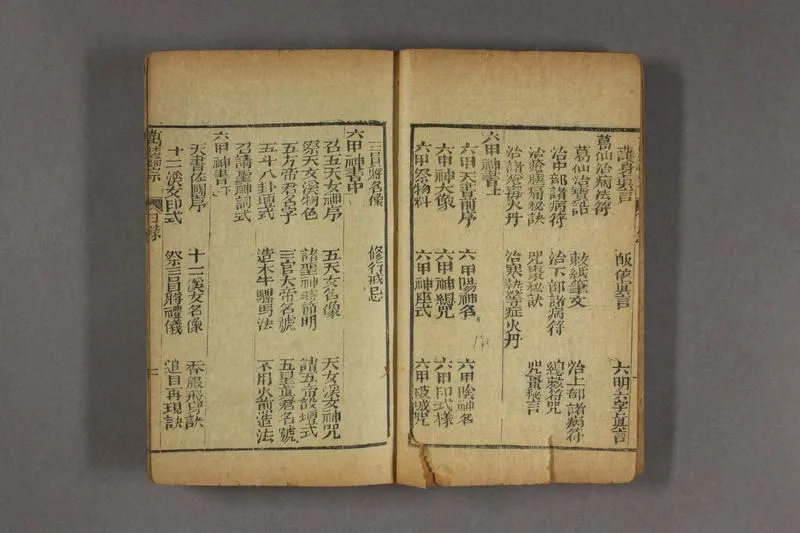 護身真言 飯食真言 六明六字真言
葛仙治病法符
葛仙治寶誥 敕紙筆文 治上部諸病符
治中部諸病符 治下部諸病符 總敕符咒
治瘡腫痛秘訣 咒棗秘訣 咒棗秘言
治諸瘡毒火丹 治寒熱等症火丹
六甲神書上
六甲天書前序 六甲陽神名 六甲陰神名
六甲神大像 六甲神總咒 六甲印式樣
六甲祭物料 六甲神壇式 六甲破城咒
三員將名像 修行戒忌
六甲神書中
召五天女神序 五天女名像 天女溪女神咒
祭天女溪物色 諸聖神時節明 請五帝設壇式
五方帝君名字 三官大帝名號 五星真君名號
五斗八卦壇式 造木牛騾馬法 不用火前造法
召請聖神詞式
六甲神書下
天書佐國序 十二溪女名像 香服飛身訣
十二溪女印式 祭三員將禮儀 追目再現訣
萬法歸宗 目錄 二